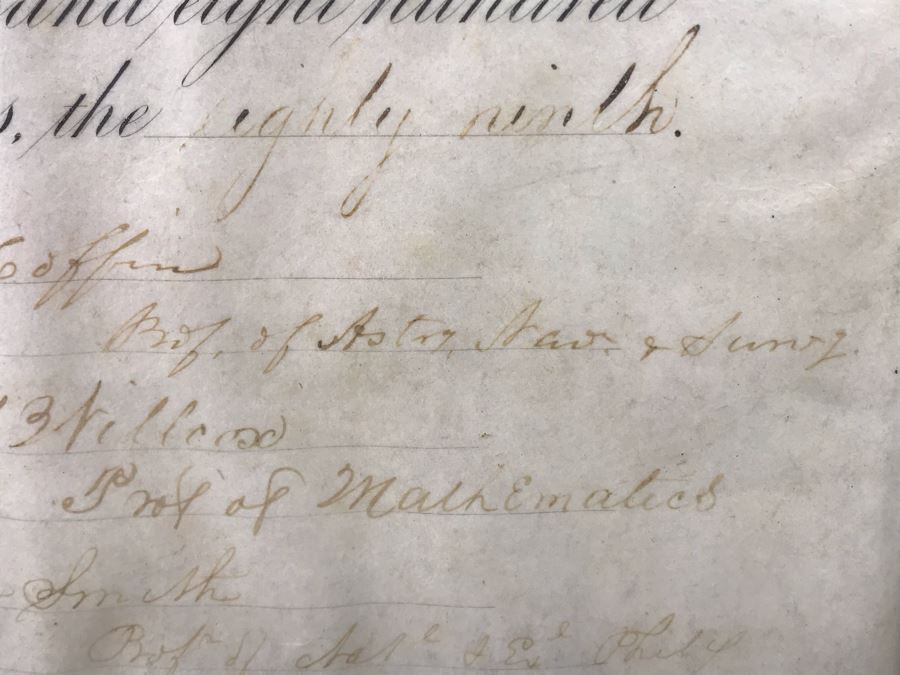 and eight hundred
s, the eighty ninth.
Coffin
Prof. of Astry. Nav. & Survg.
Willcox
Prof of Mathematics
Smith
Profr of Natl & Exl Phily